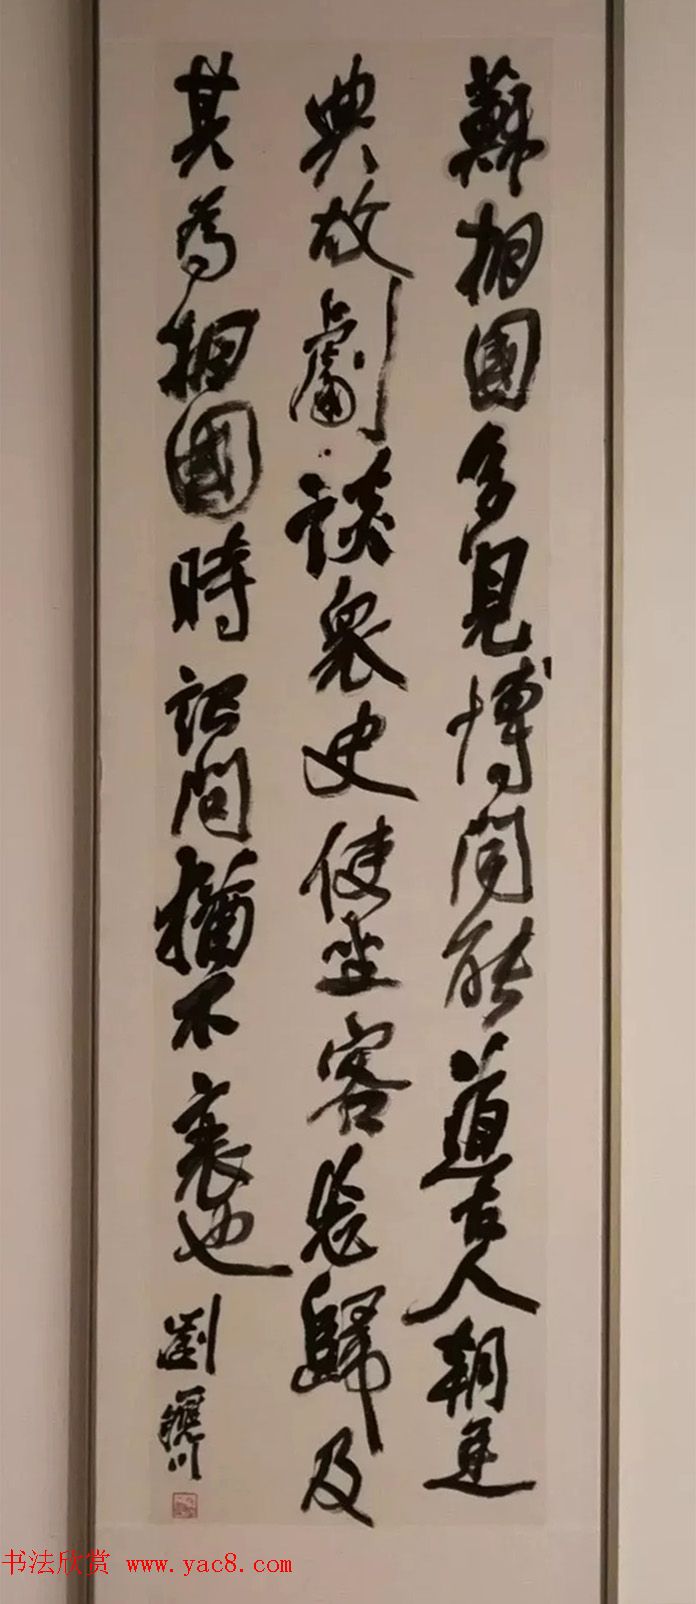 蘇相國多見博聞能道古人朝廷
典故劇談衆史使坐客忘歸及
其為相國時記問猶不衰也
劉
书法欣赏 www.yac8.com